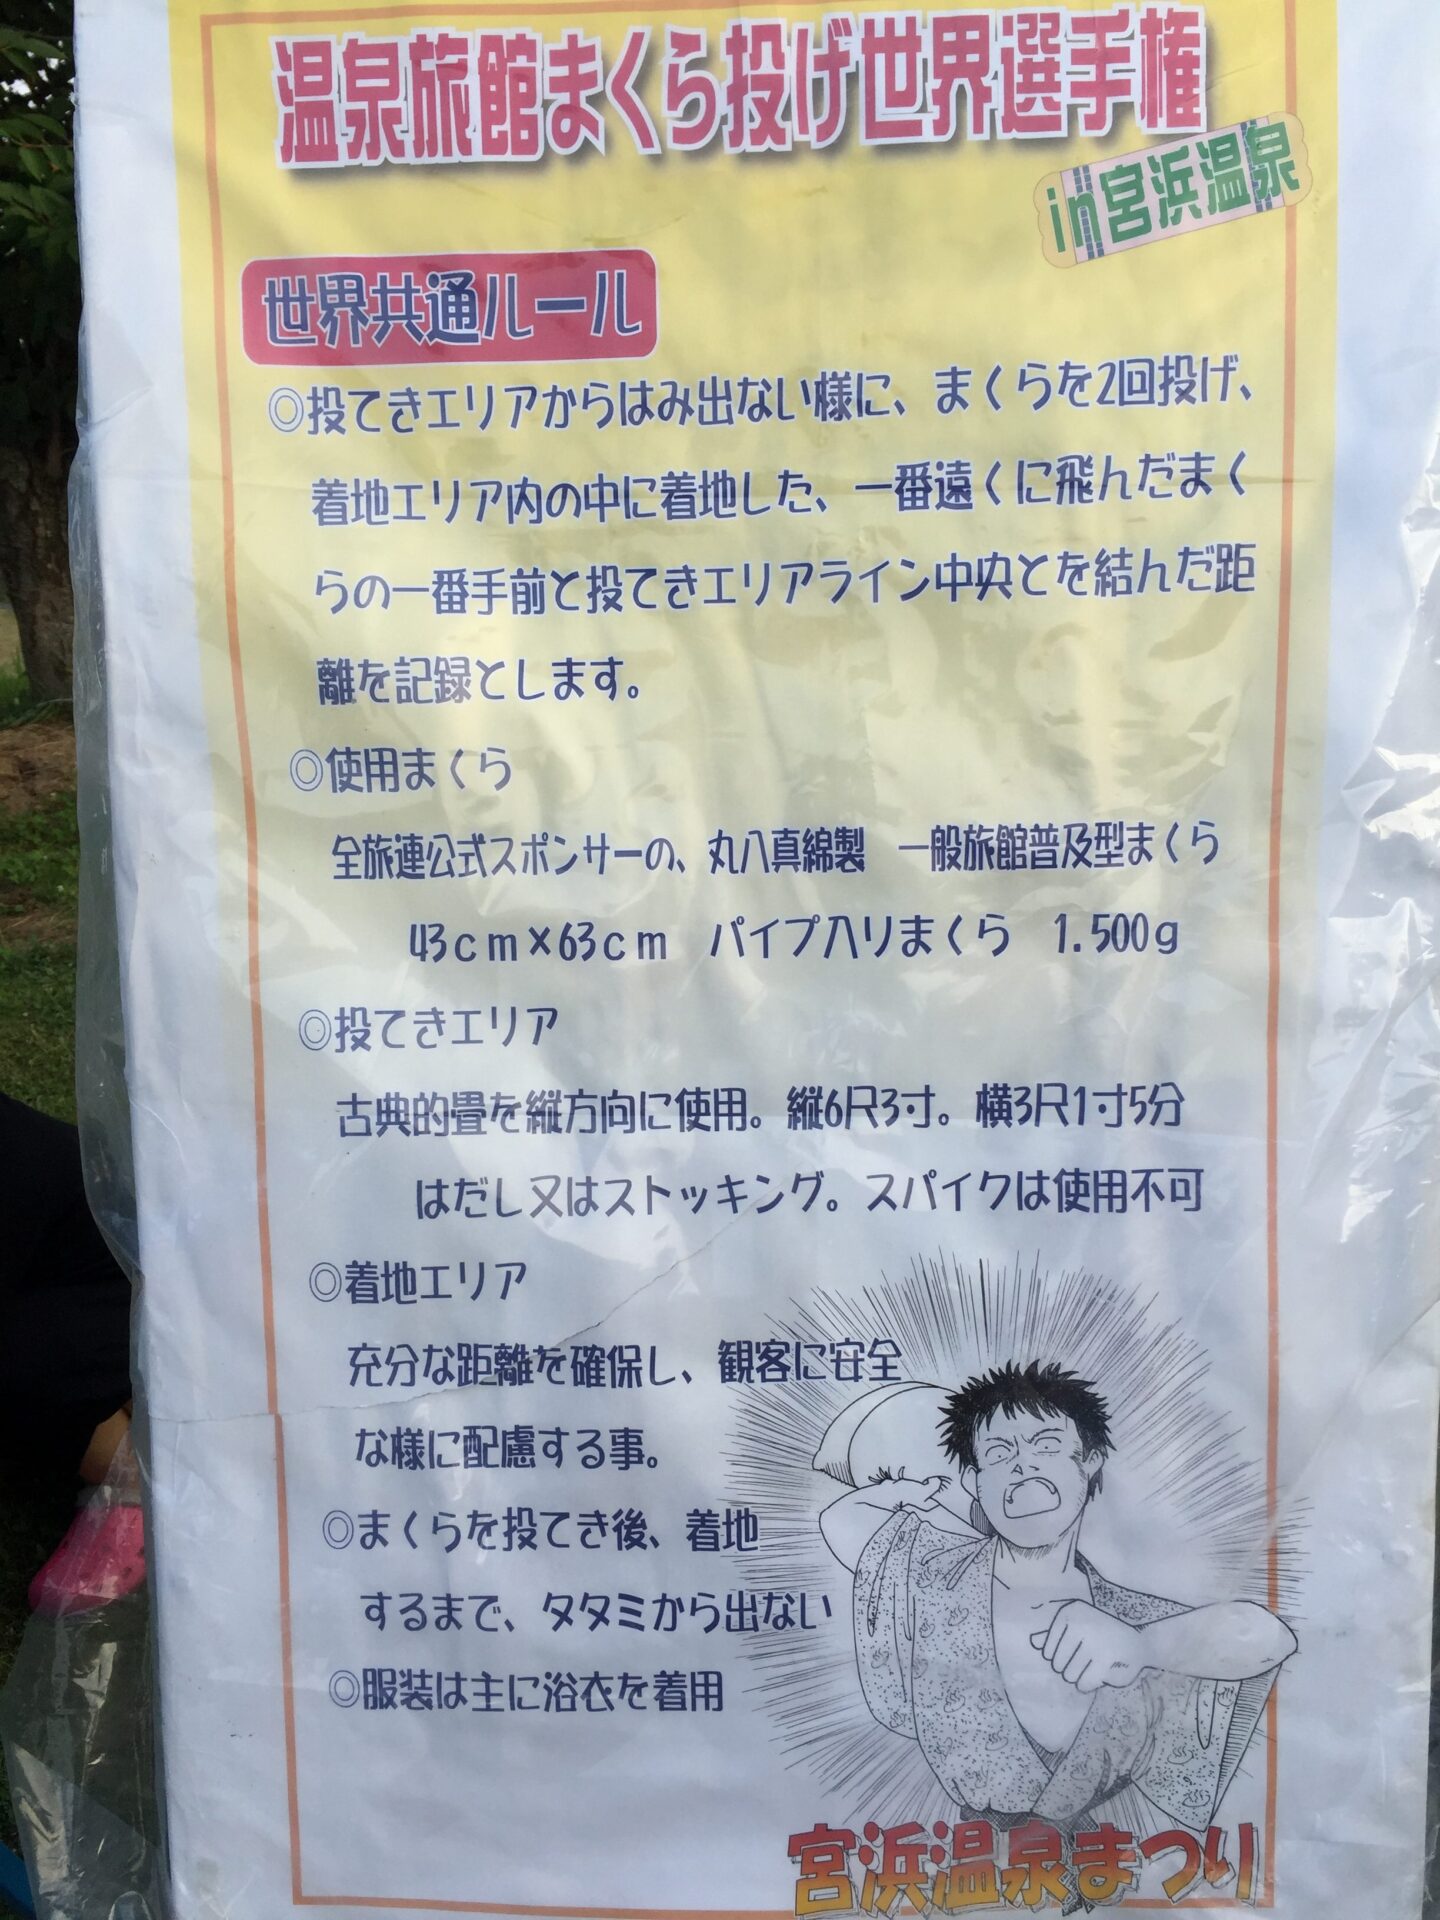 温泉旅館まくら投げ世界選手権
in宮浜温泉
世界共通ルール
◎投てきエリアからはみ出ない様に、まくらを2回投げ、
着地エリア内の中に着地した、一番遠くに飛んだまく
らの一番手前と投てきエリアライン中央とを結んだ距
離を記録とします。
◎使用まくら
全旅連公式スポンサーの、丸八真綿製　一般旅館普及型まくら
43cm×63cm　パイプ入りまくら　1.500g
◎投てきエリア
古典的畳を縦方向に使用。縦6尺3寸。横3尺1寸5分
はだし又はストッキング。スパイクは使用不可
◎着地エリア
充分な距離を確保し、観客に安全
な様に配慮する事。
◎まくらを投てき後、着地
するまで、タタミから出ない
◎服装は主に浴衣を着用
宮浜温泉まつり